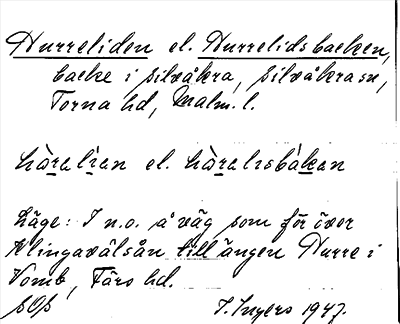 Hurreliden el. Hurrelidsbacken,
backe i Silvåkra, Silvåkra sn,
Torna hd, Malm. l.
hàralian el. hàralisbákan
Läge: I n.o. å väg som för över
Klingavälsån till ängen Hurre i
Vomb, Färs hd.
SOß
I. Ingers 1947.